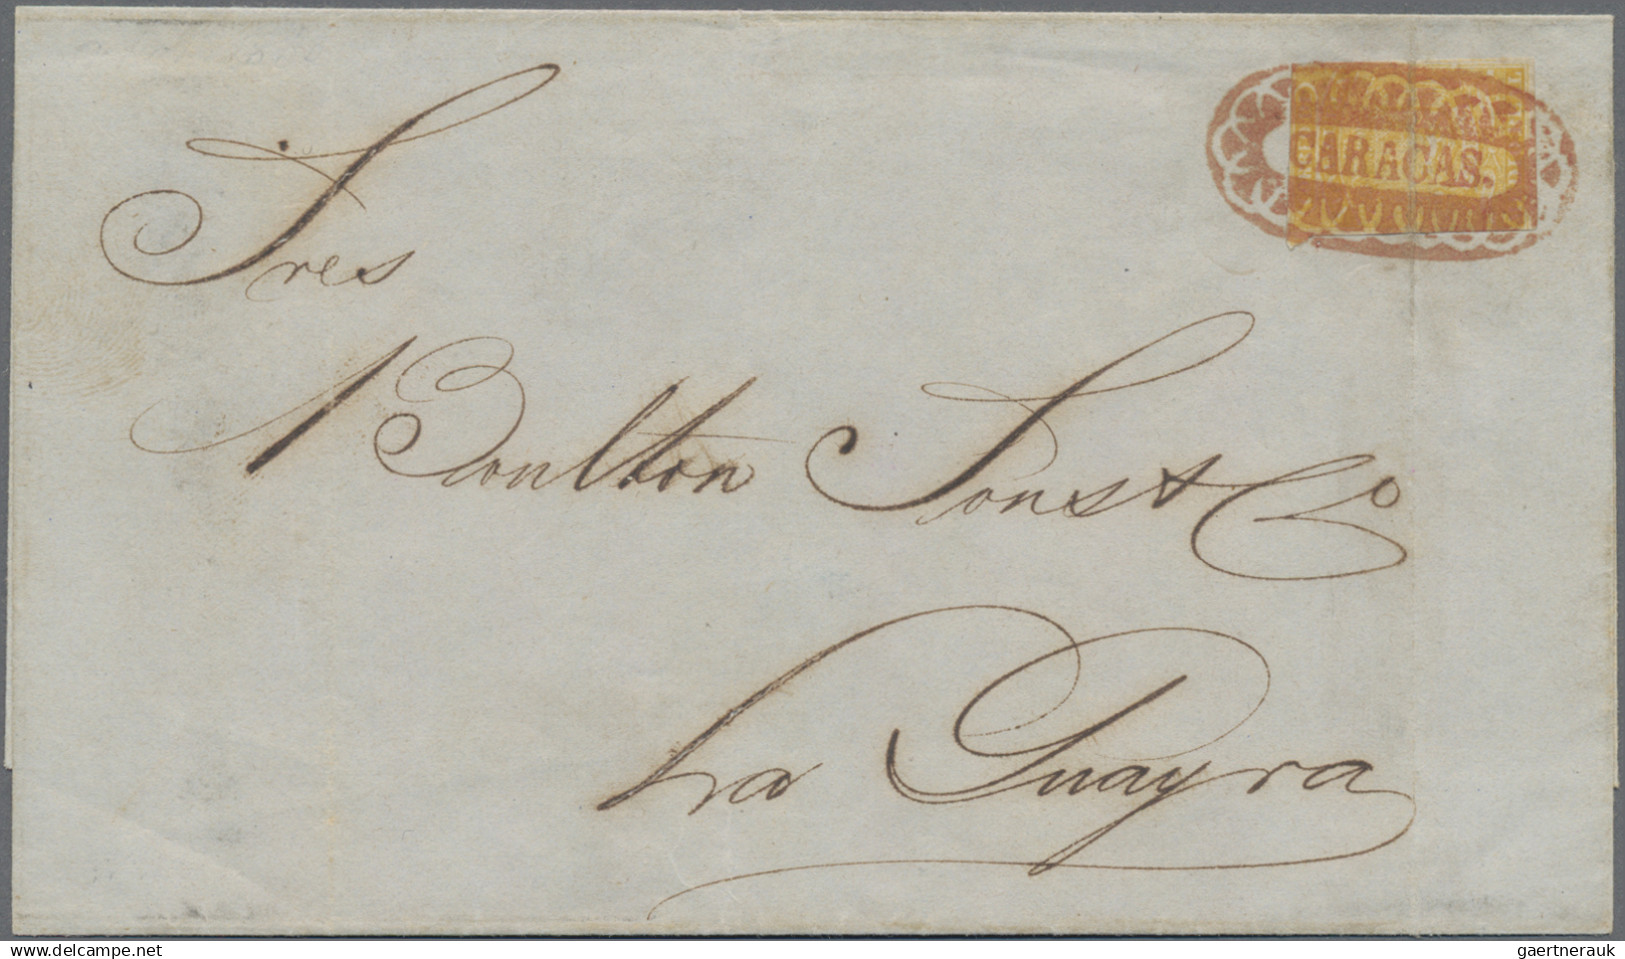 CARACAS.
Sres
Boulton Sons & Co
La Guayra
delcampe.net
gaertnerauk